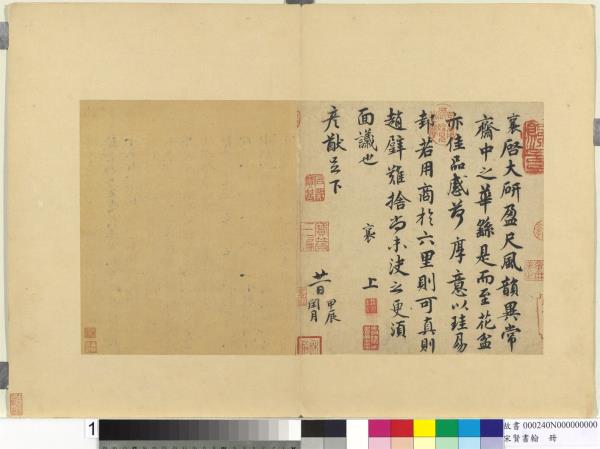 襄啓大研盈尺風韻異常
齋中之華繇是而至花盆
亦佳品感荷厚意以珪易
邽若用商於六里則可真則
趙璧難捨尚未決之更須
面議也 襄 上
彥猷足下
廿一日甲辰閏月
1
故書 000240N000000000
宋賢書翰 冊